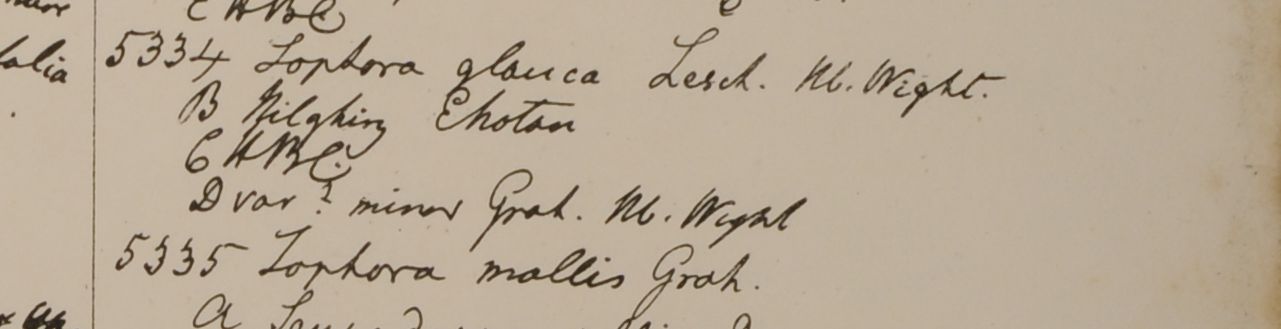 C HBC
5334 Sophora glauca Lesch. Hb. Wight.
B Nilghiry Chotan
C HBC.
D var? minor Grah. Hb. Wight
5335 Sophora mollis Grah.
a